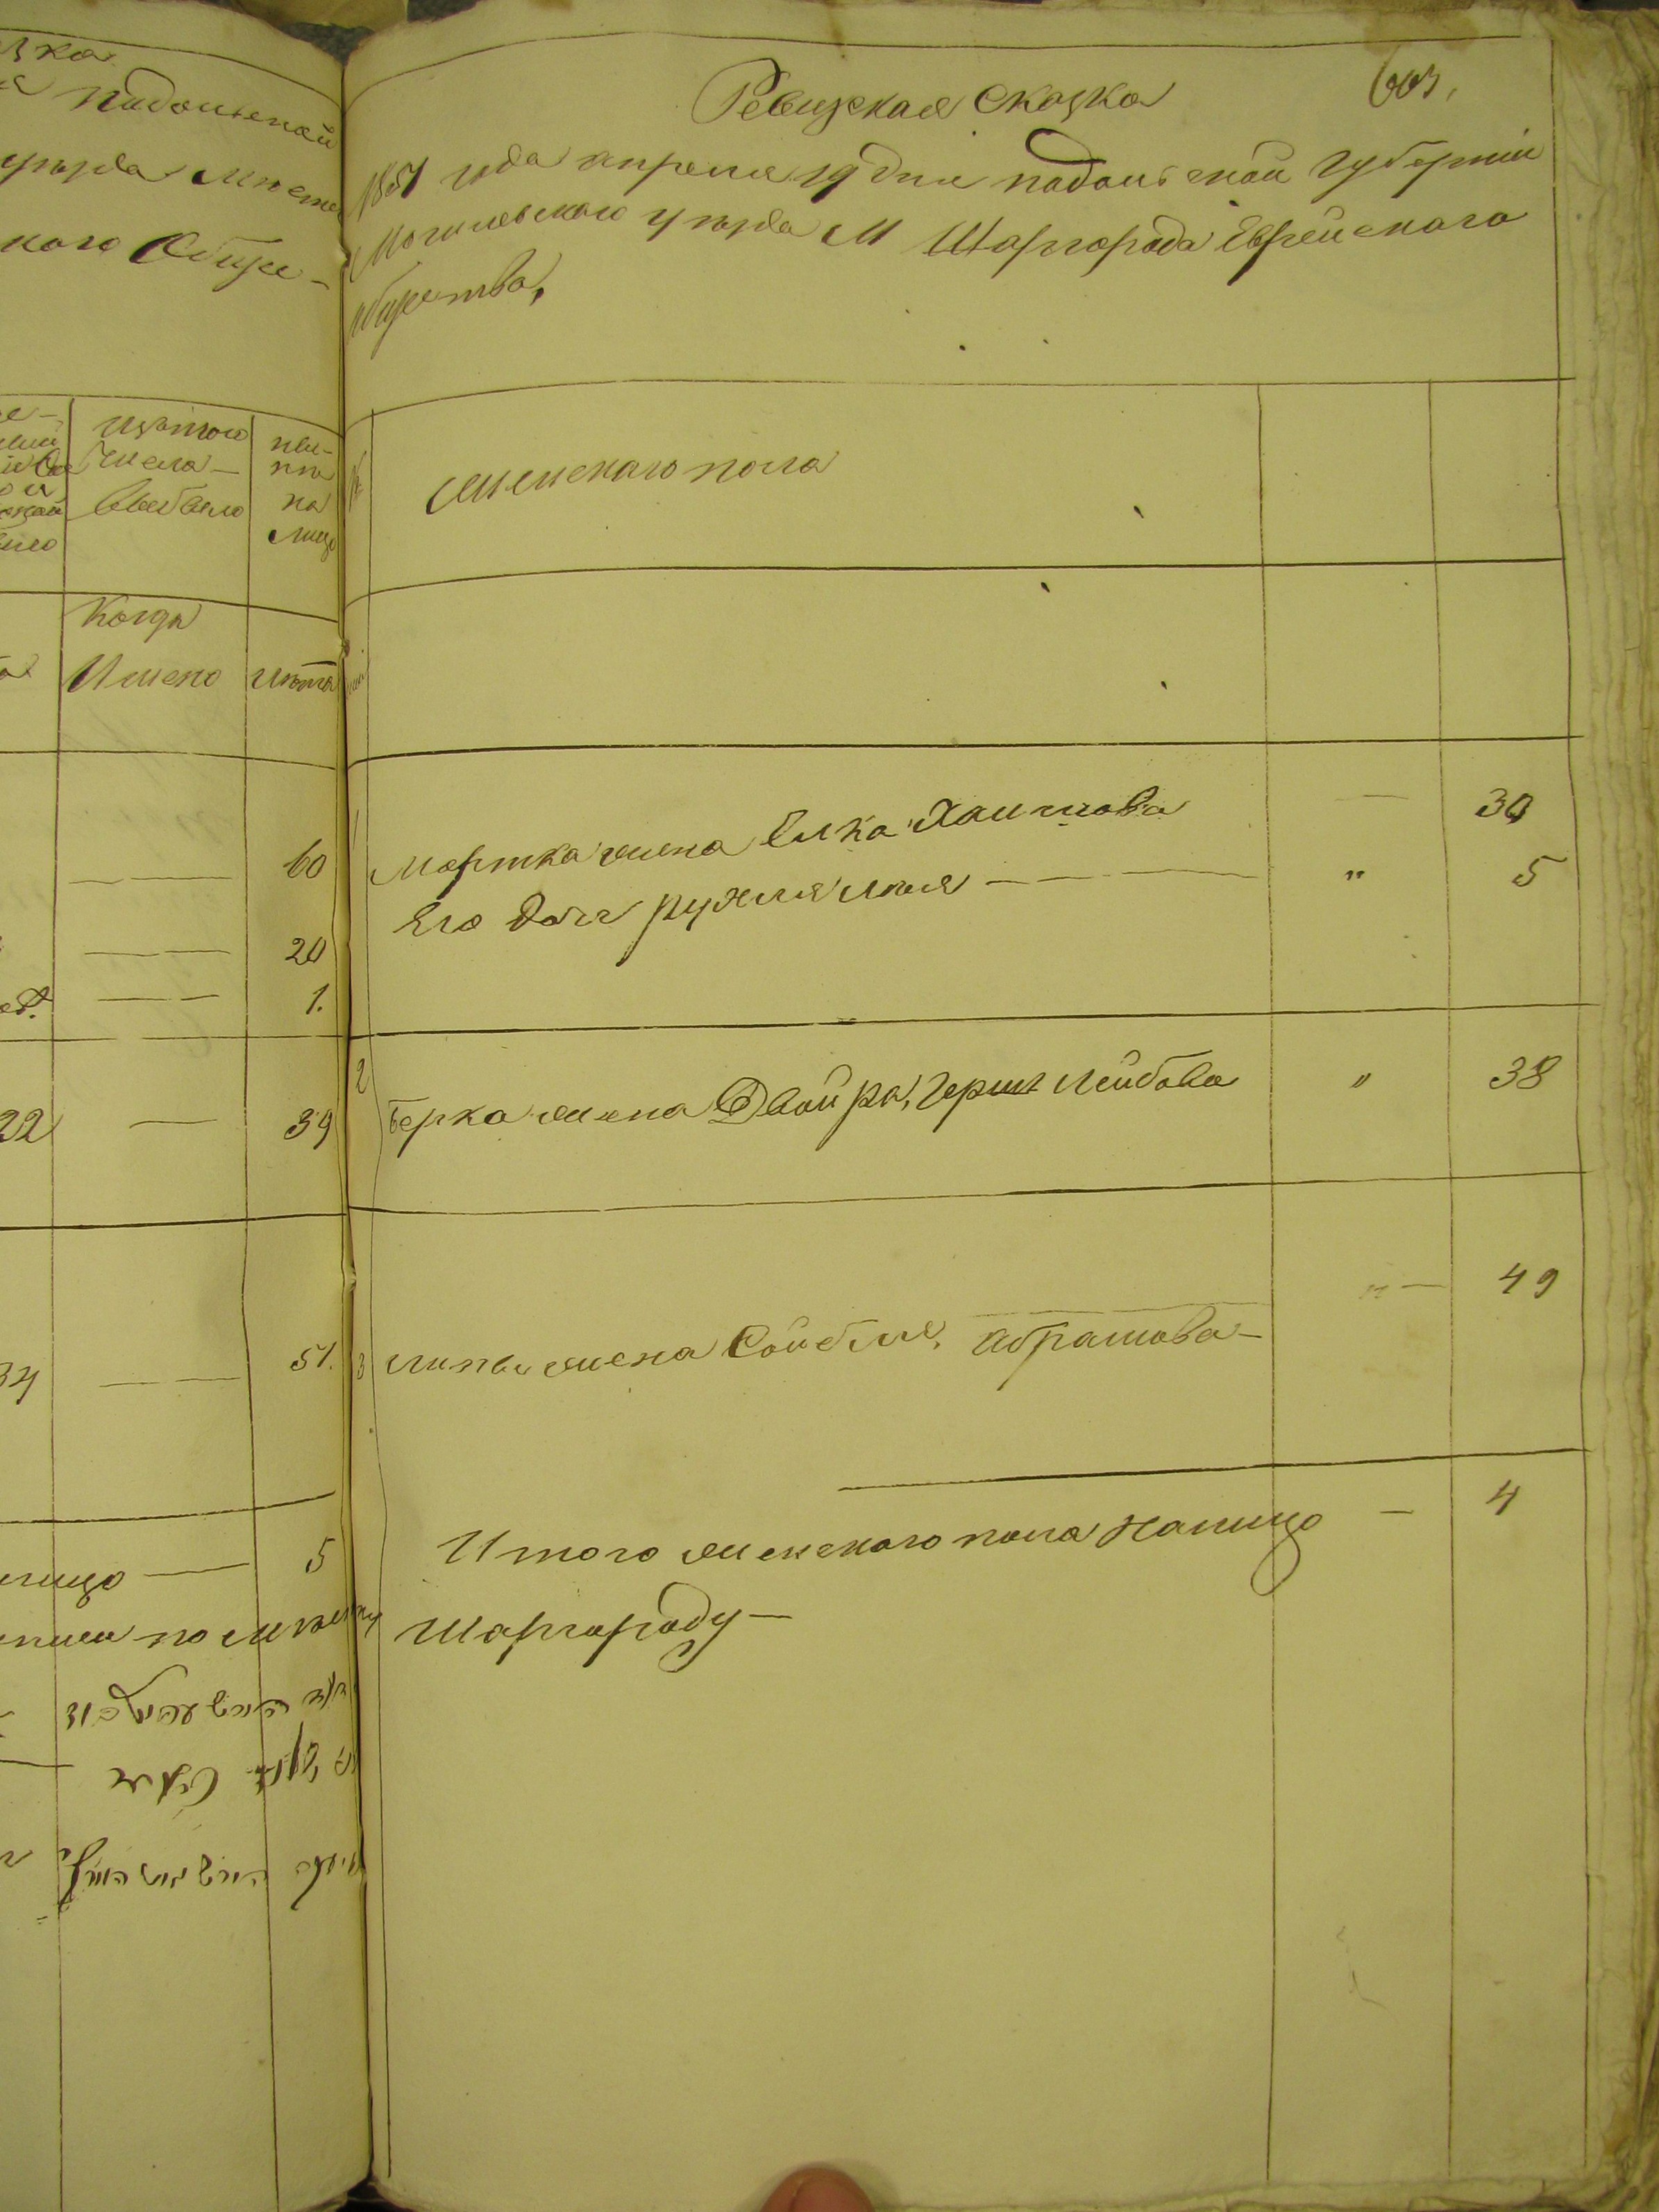 зка
Подольской
уезда Месте
кого Обще-
из того
числа
выбыло
ны-
не
на
лицо
Когда
Имено
лета
60
20
1.
22
39
34
51.
лицо — 5
603.
Ревизская Сказка
1851 года апреля 19 дня подольской губернии
Могилевского уезда М Шаргорода Еврейского
общества,
Женского пола
Мортка жена Елка Хаимова — 30
Его дочь Рухля " 5
2 Берка жена Двойра, Герш Лейбова " 38
3 жена Сойбля, Абрамова — 49
Итого женского пола налицо — 4
Шаргороду —